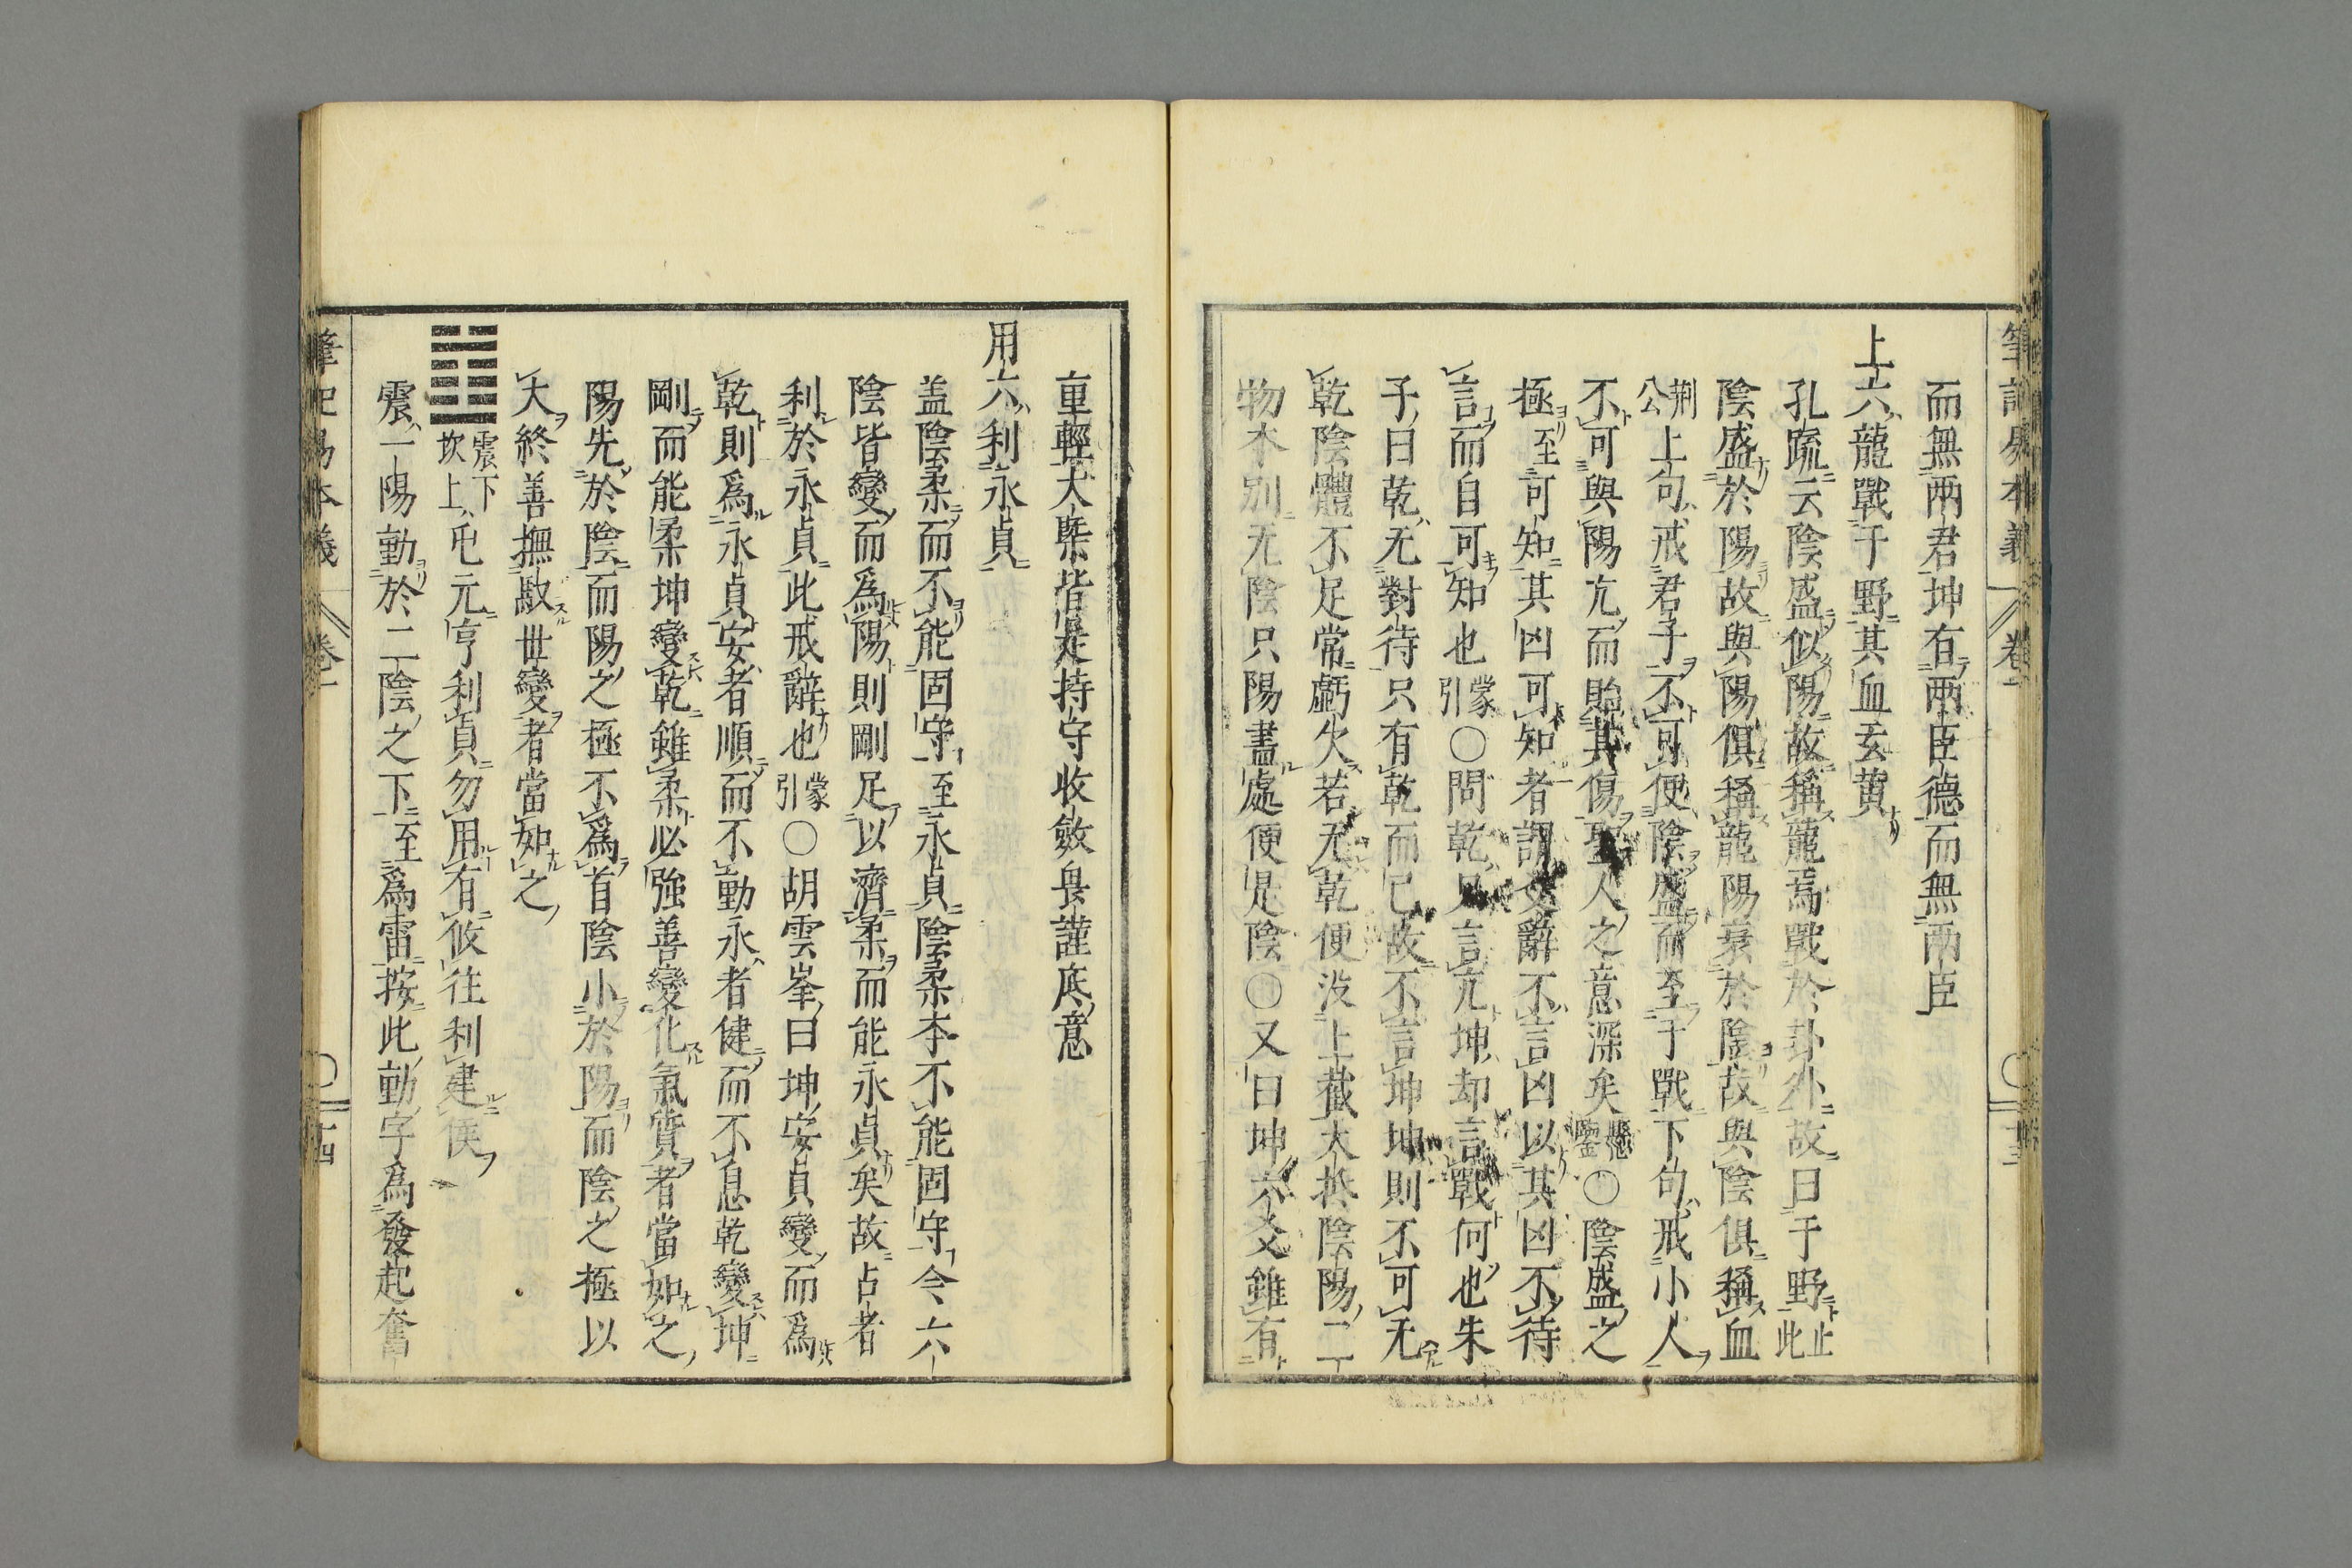 而無兩君坤有兩臣德而無兩臣
上六龍戰于野其血玄黄
孔疏云陰盛似陽故稱龍焉戰於卦外故曰于野止此
陰盛於陽故與陽俱稱龍陽衰於陰故與陰俱稱血
荆公上句戒君子不可使陰盛而至于戰下句戒小人
不可與陽亢而貽其傷聖人之意深矣〇陰盛之
極至可知其凶可知者謂爻辭不言凶以其凶不待
言而自可知也蒙引〇問乾只言亢坤却言戰何也朱
子曰乾无對待只有乾而已故不言坤坤則不可无
乾陰體不足常虧欠若无乾便没上截大抵陰陽二
物本別无陰只陽盡處便是陰〇又曰坤六爻雖有
重輕大槩皆是持守收斂畏謹底意
用六利永貞
盖陰柔而不能固守至永貞陰柔本不能固守今六
陰皆變而爲陽則剛足以濟柔而能永貞矣故占者
利於永貞此戒辭也蒙引〇胡雲峯曰坤安貞變而爲
乾則爲永貞安者順而不動永者健而不息乾變坤
剛而能柔坤變乾雖柔必強善變化氣質者當如之
陽先於陰而陽之極不爲首陰小於陽而陰之極以
大終善撫馭世變者當如之
震下坎上屯元亨利貞勿用有攸往利建侯
震一陽動於二陰之下至爲雷按此動字爲發起奮
筆記易本義 卷一 十四